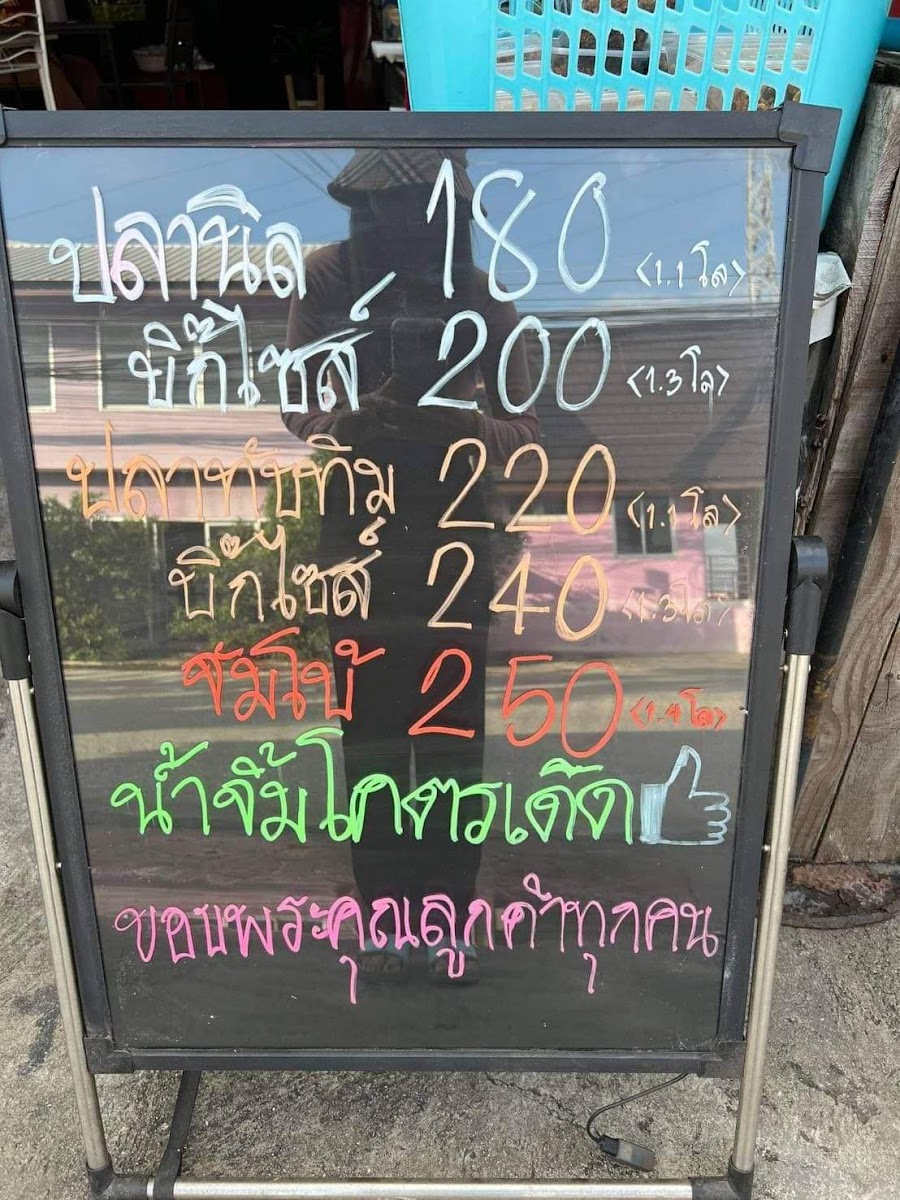 ปลานิล 180 <1.1โล>
บิ๊กไซส์ 200 <1.3โล>
ปลาทับทิม 220 <1.1โล>
บิ๊กไซส์ 240 <1.3โล>
จัมโบ้ 250 <1.4โล>
น้ำจิ้มโคตรเด็ด
ขอบพระคุณลูกค้าทุกคน